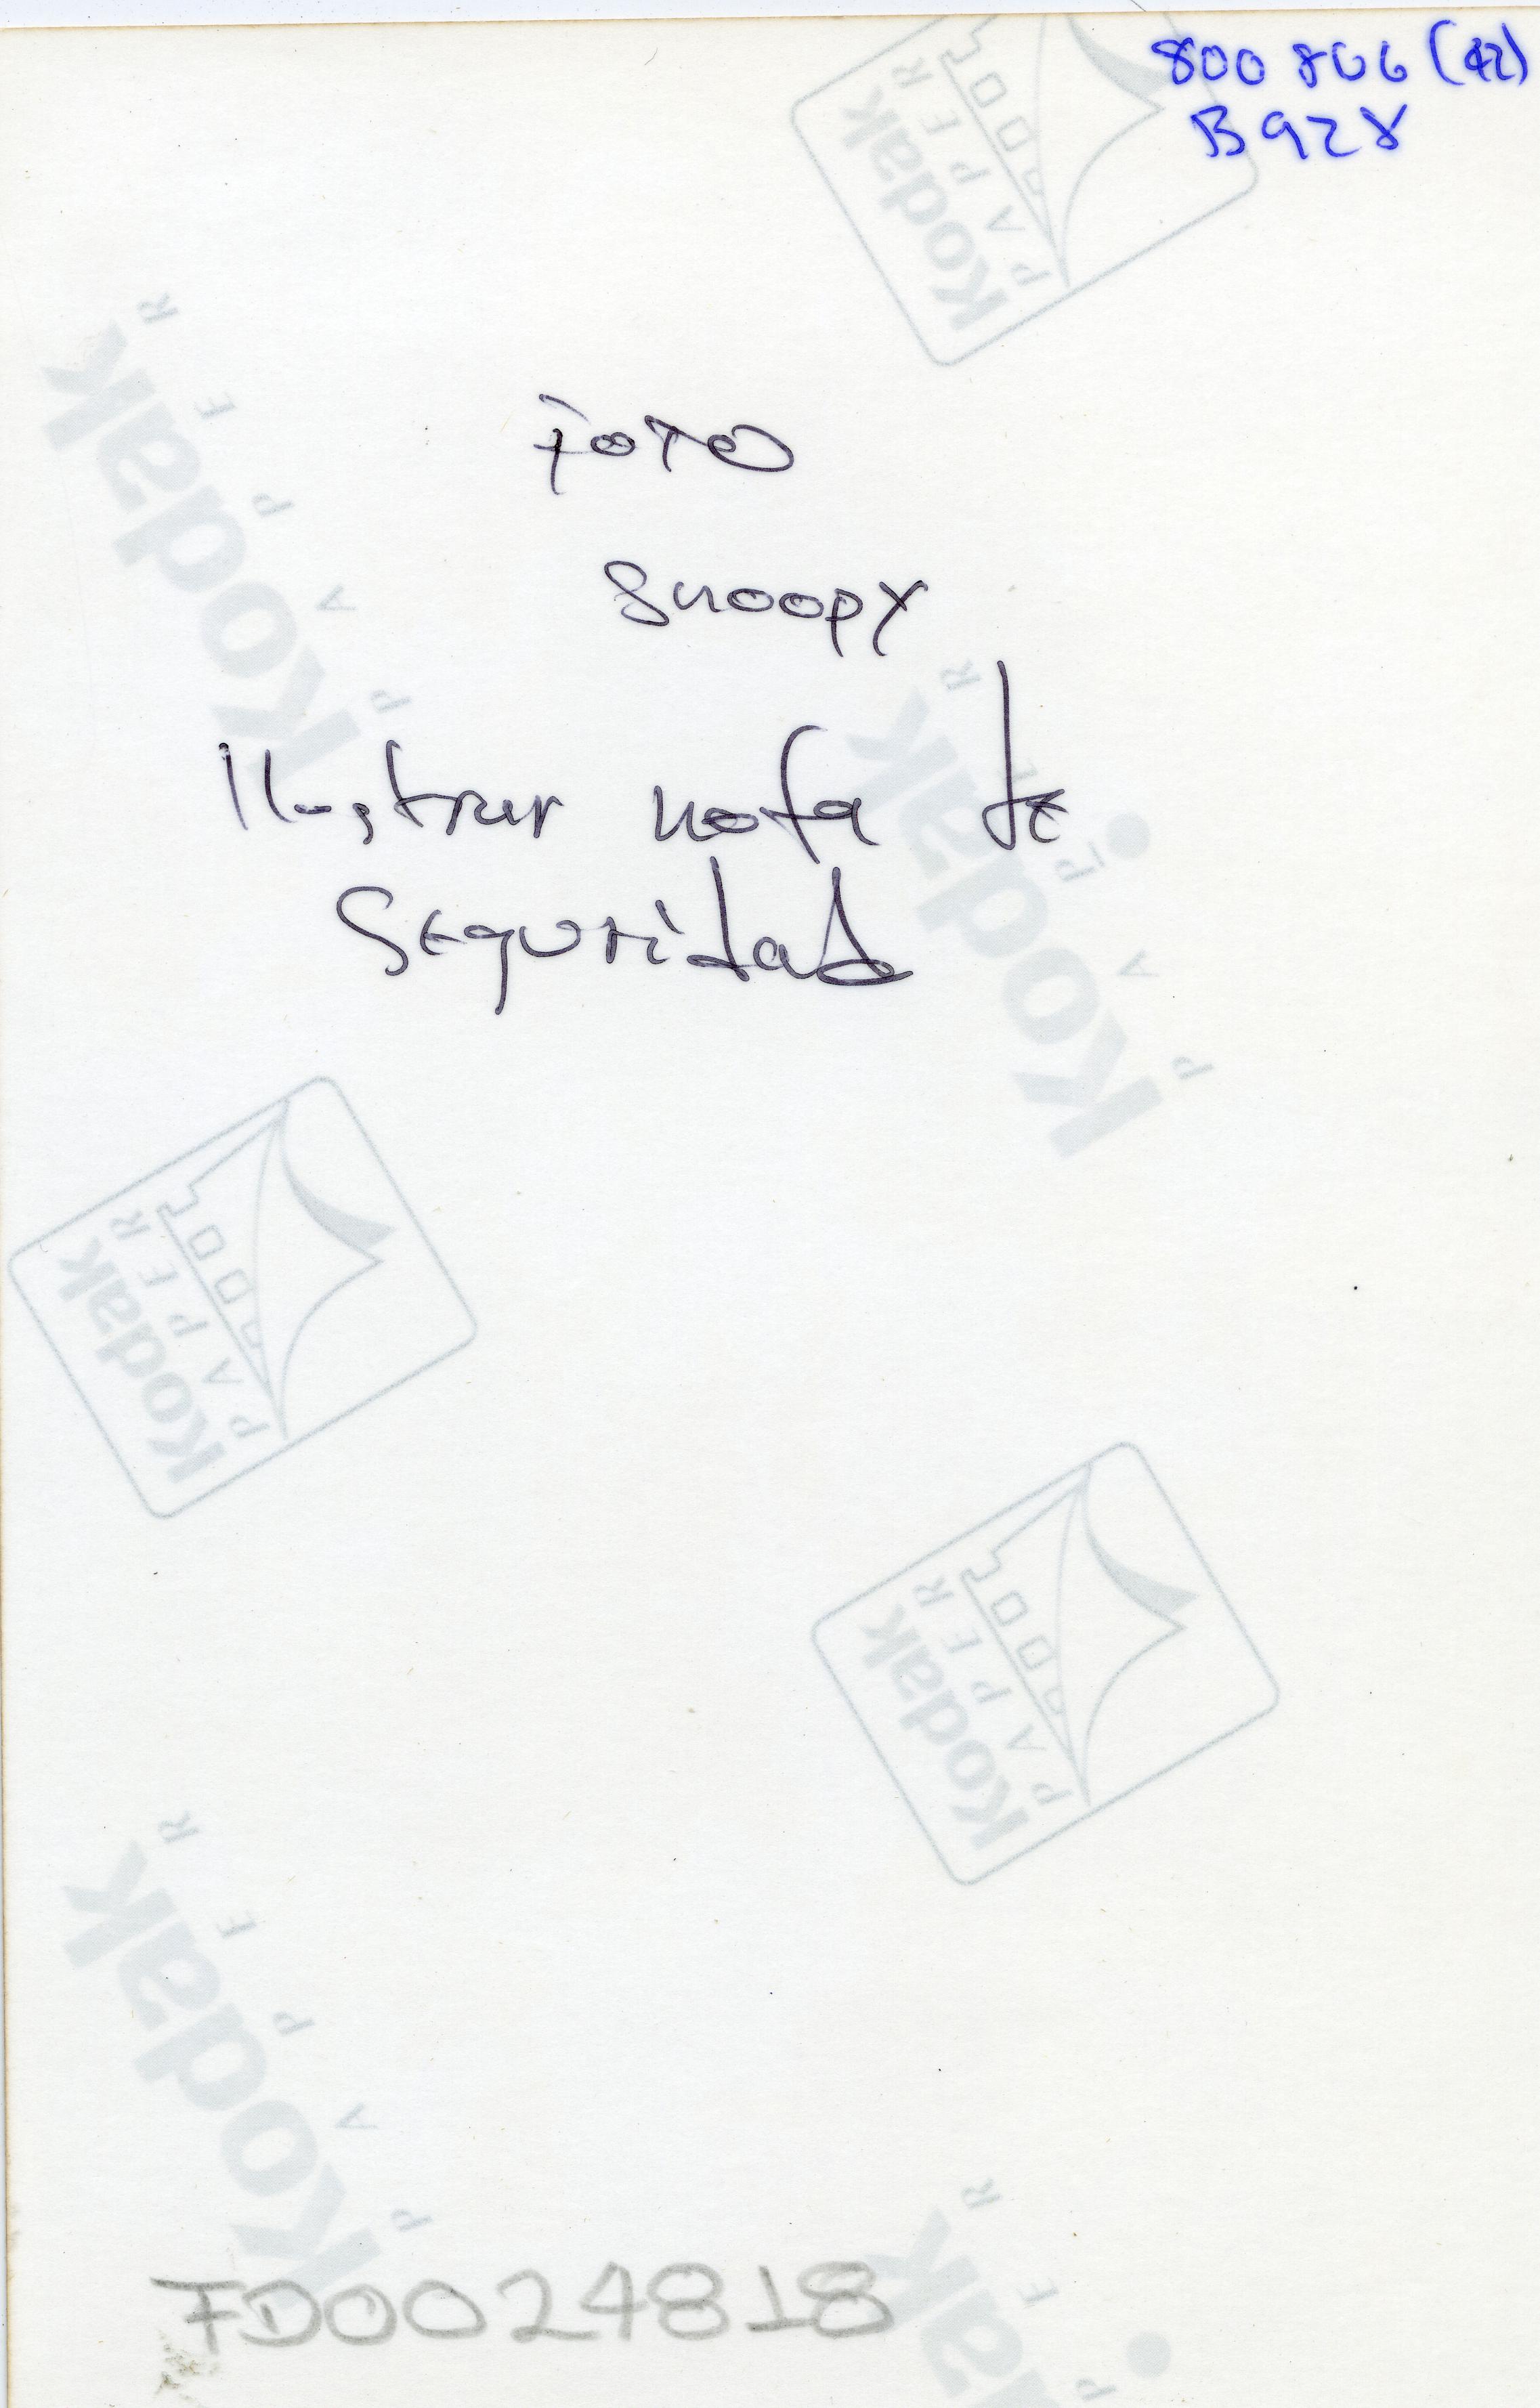 800 806 (42)
B928
FOTO
Snoopy
Ilustrar nota de
Seguridad
Kodak
PAPER
Kodak
PAPER
Kodak
PAPER
Kodak
PAPER
Kodak
PAPER
Kodak
PAPER
FD0024818